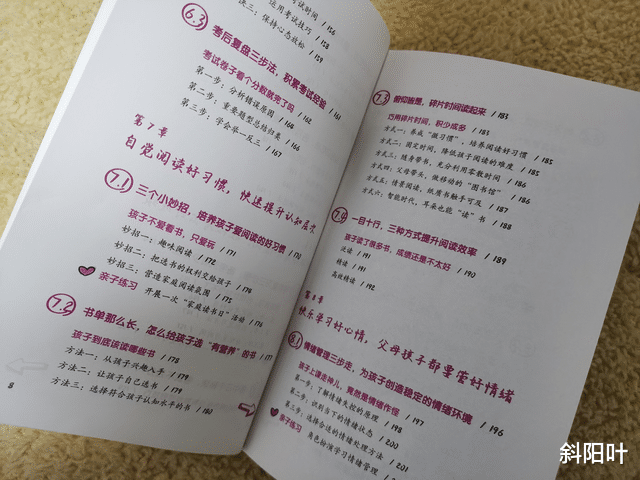 运用考试技巧 / 158
法三：保持心态放松 / 159
6.3 考后复盘三步法，积累考试经验 / 161
考试卷子看个分数就完了吗 / 162
第一步：分析错误原因 / 164
第二步：重要题型总结归类 / 166
第三步：学会举一反三 / 167
第7章
自觉阅读好习惯，快速提升认知层次
7.1 三个小妙招，培养孩子爱阅读的好习惯 / 170
孩子不爱看书，只爱玩 / 171
妙招一：趣味阅读 / 172
妙招二：把选书的权利交给孩子 / 174
妙招三：营造家庭阅读氛围 / 175
亲子练习 开展一次“家庭读书日”活动 / 176
7.2 书单那么长，怎么给孩子选“有营养”的书 / 177
孩子到底该读哪些书 / 178
方法一：从孩子兴趣入手 / 178
方法二：让孩子自己选书 / 179
方法三：选择符合孩子认知水平的书 / 180
8
7.3 俯仰皆是，碎片时间阅读起来 / 183
巧用碎片时间，积少成多 / 183
方式一：养成“微习惯”，培养阅读好习惯 / 185
方式二：固定时间，降低孩子阅读的难度 / 185
方式三：随身带书，充分利用零散时间 / 186
方式四：父母带头，做移动的“图书馆” / 186
方式五：情景阅读，纸质书触手可及 / 187
方式六：智能时代，耳朵也能“读”书 / 188
7.4 一目十行，三种方式提升阅读效率 / 189
孩子读了很多书，成绩还是不太好 / 190
泛读 / 191
精读 / 191
高效精读 / 192
第8章
快乐学习好心情，父母孩子都要管好情绪
8.1 情绪管理三步走，为孩子创造稳定的情绪环境 / 196
孩子上课走神儿，竟然是情绪作怪 / 197
第一步：了解情绪失控的原理 / 198
第二步：识别当下的情绪状态 / 200
第三步：选择合适的情绪处理方法 / 201
亲子练习 角色扮演学习情绪管理
斜阳叶